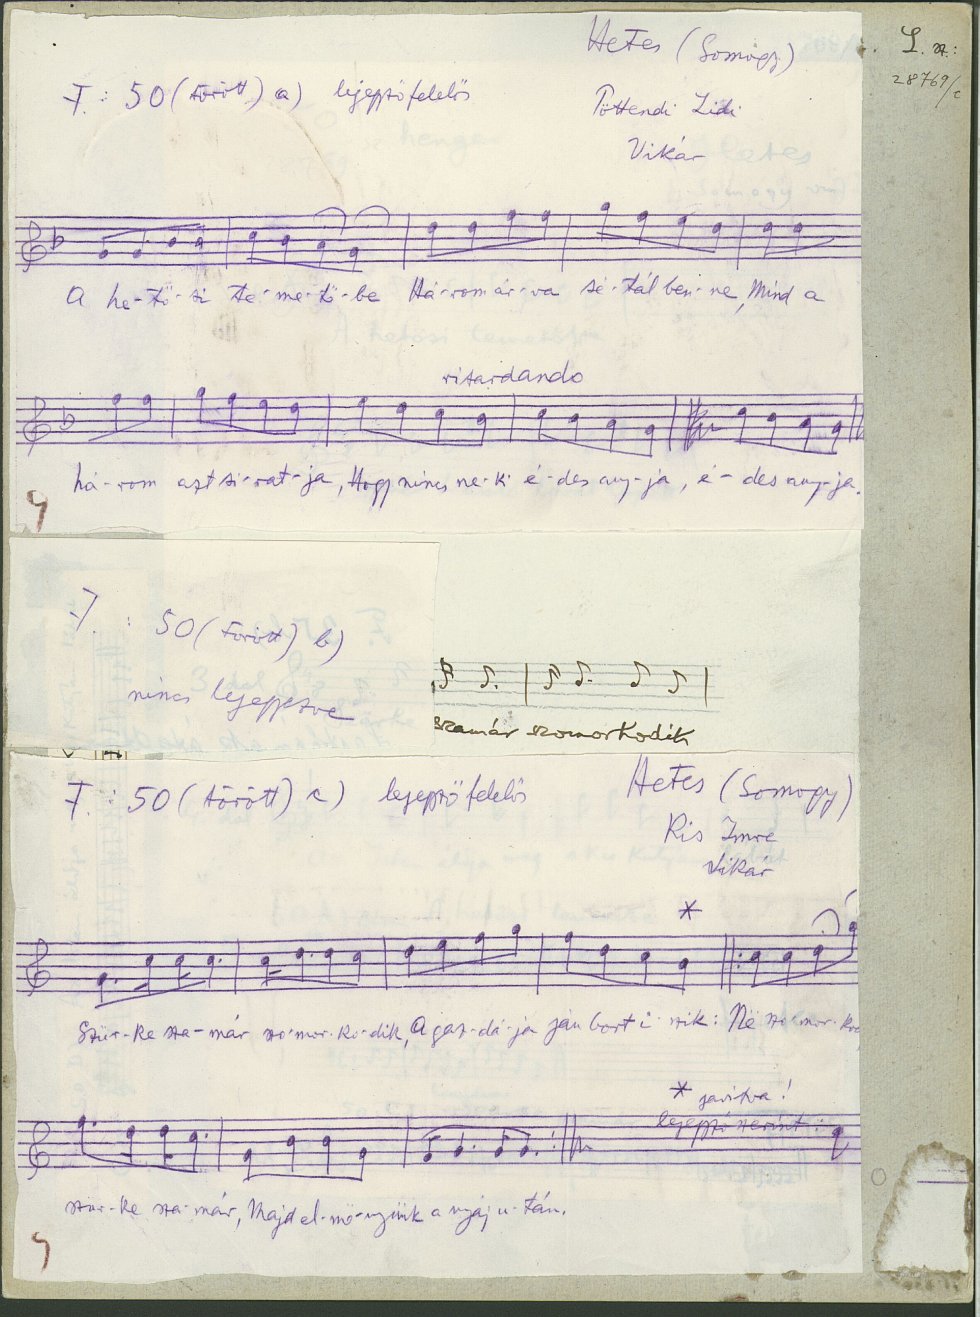 Hetes (Somogy)
L. sz.:
28769/c
F. : 50 (törött) a) lejegyző felelős
Pöttendi Lidi
Vikár
A he-tö-si te-me-tö-be Há-rom ár-va sé-tál ben-ne, Mind a
ritardando
há-rom azt si-rat-ja, Hogy nincs ne-ki é-des any-ja, é-des any-ja.
F. : 50 (törött) b)
nincs lejegyezve
szamár szomorkodik
F. : 50 (törött) c) lejegyző felelős
Hetes (Somogy)
Kis Imre
Vikár
*
Szür-ke sza-már szo-mor-ko-dik, A gaz-dá-ja jân bort i-szik: Në szo-mor-ko
* javítva!
lejegyző szerint :
szür-ke sza-már, Majd el-më-gyünk a nyáj u-tán.